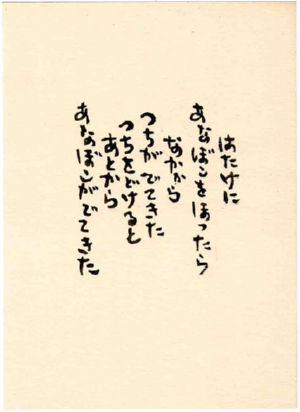 はたけに
あなぼこをほったら
なかから
つちがでてきた
つちをどけると
あとから
あなぼこがでてきた